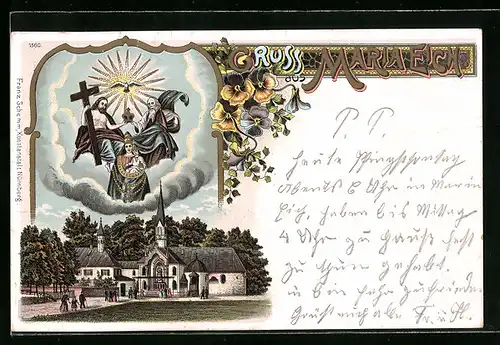 1360
GRUSS
aus
MARIA EICH
Franz Schemm, Kunstanstalt, Nürnberg.
P. P.
heute Pfingstsonntag
abends 8 Uhr in Maria
Eich, haben bis Mittag
4 Uhr zu Hause fest
zu thun gehabt.
u sehr zufrieden
Grüßt mich alle